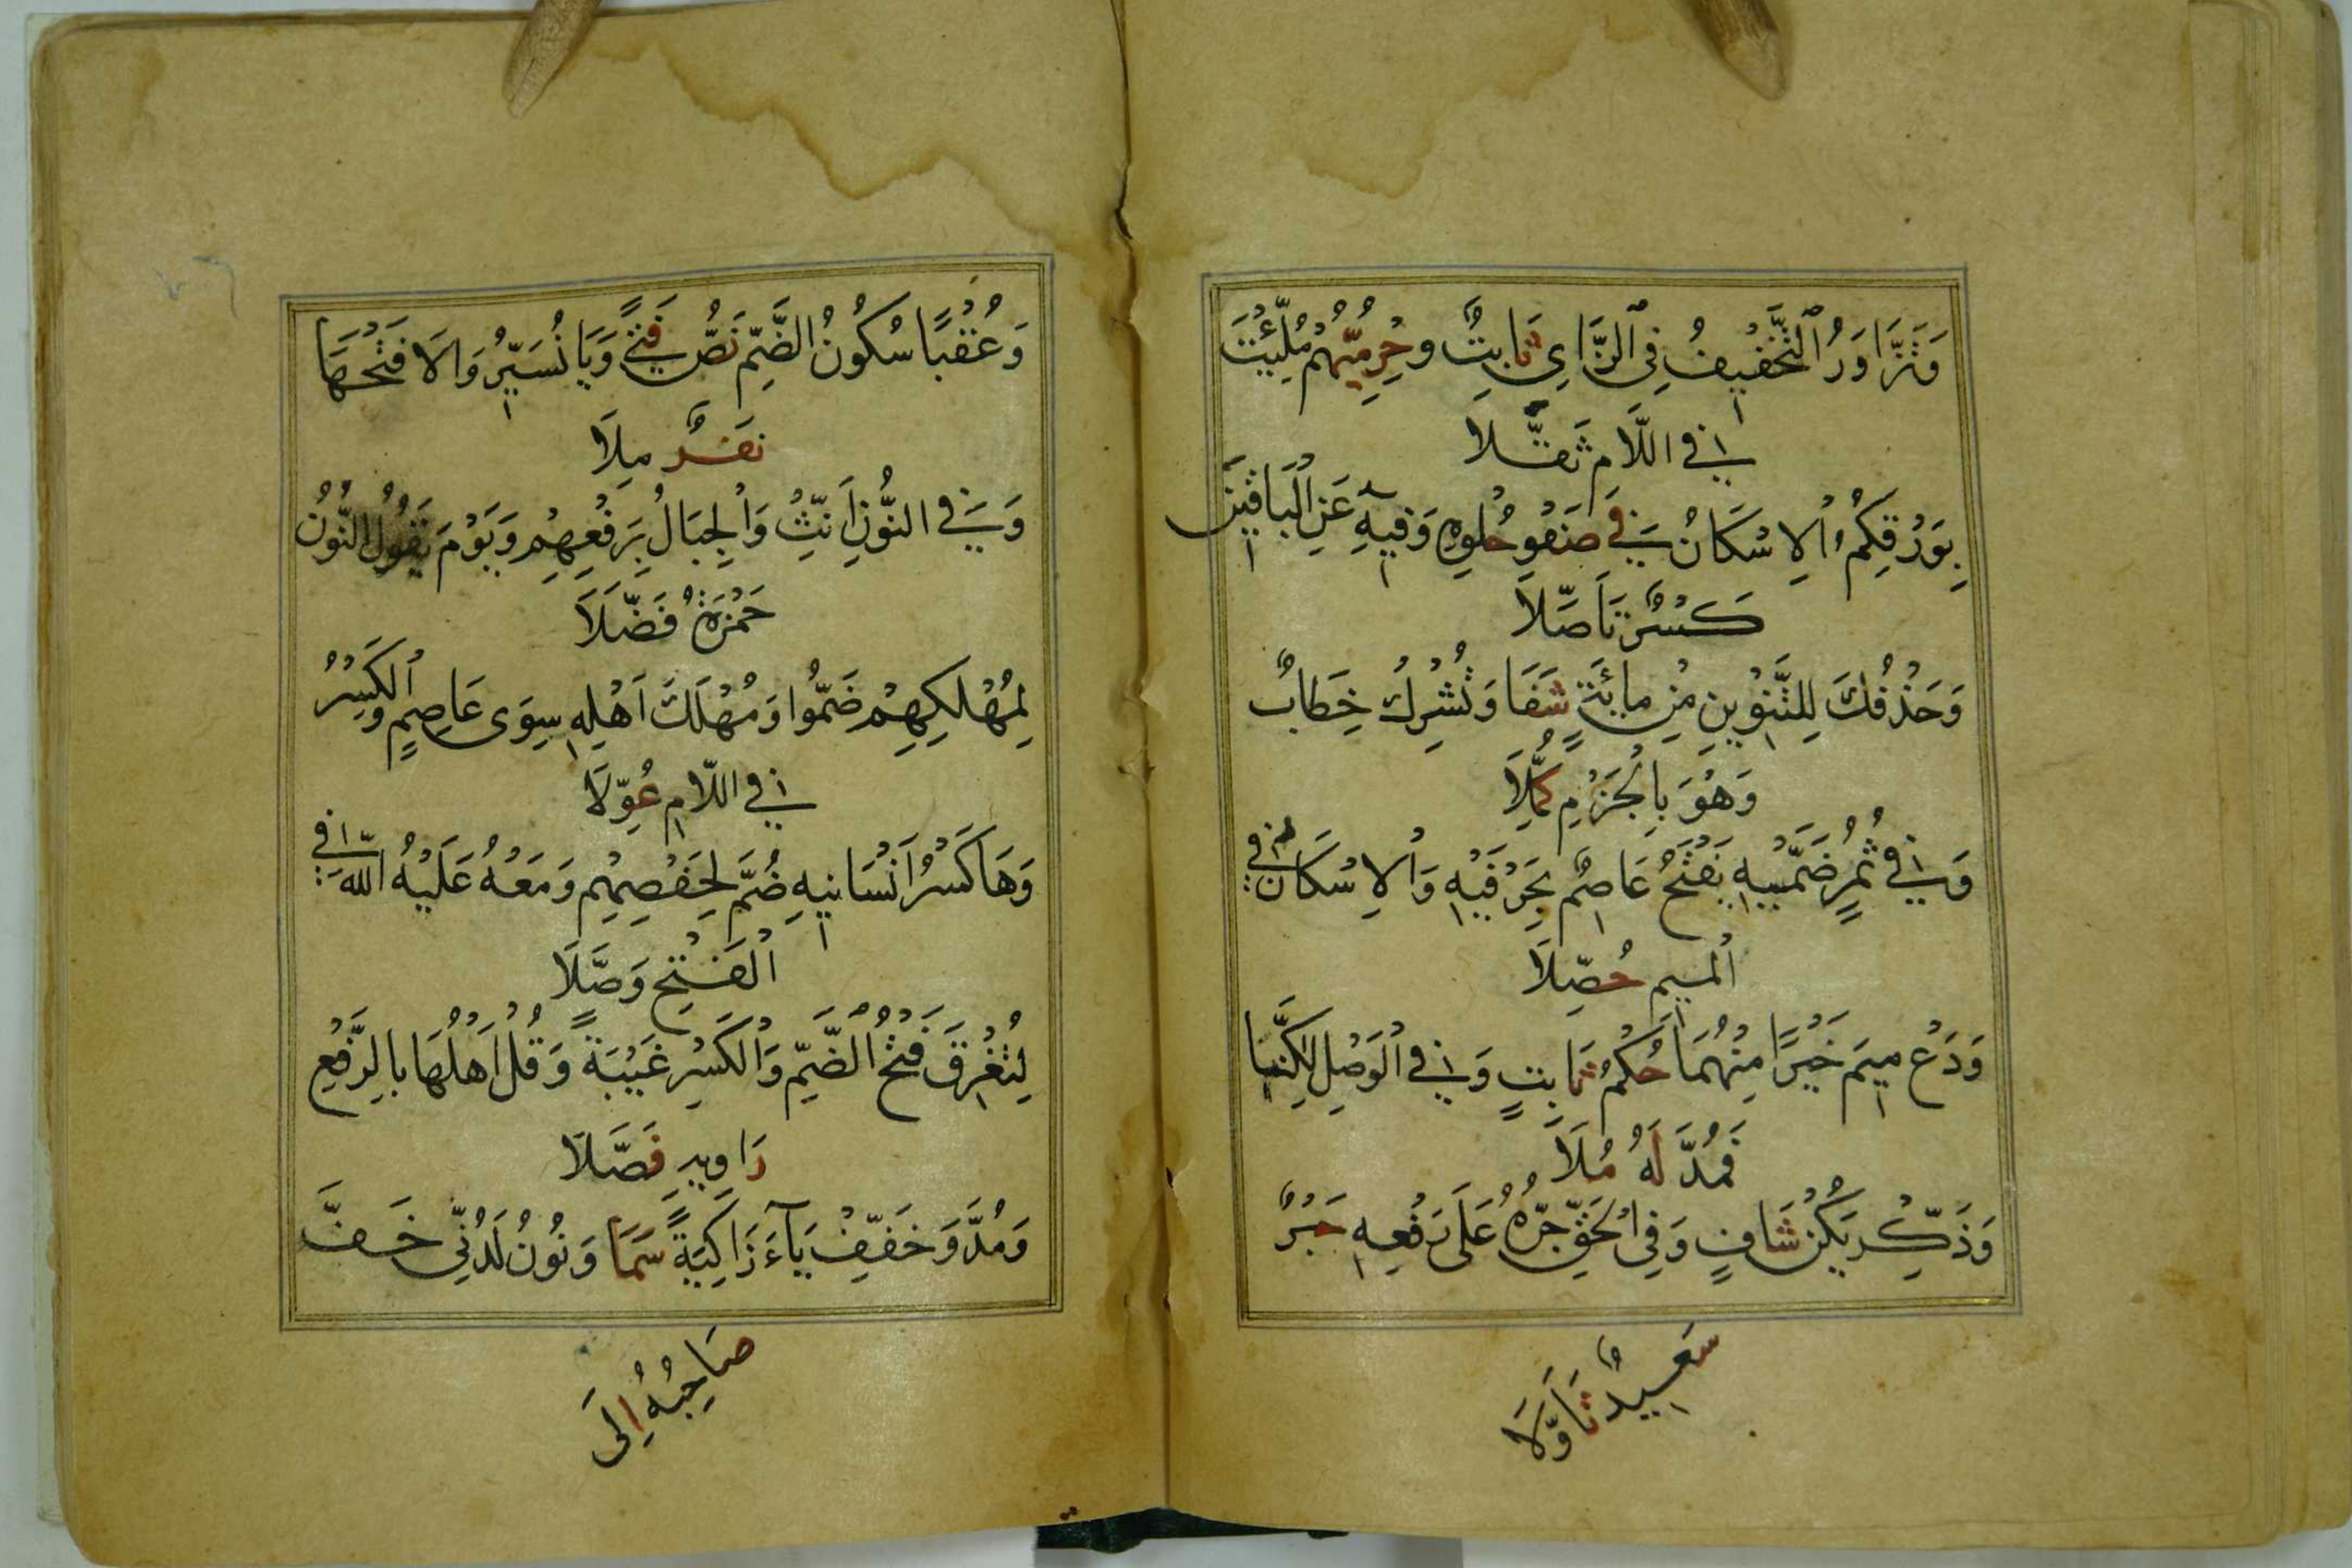 وَتَزَّاوَرُ ٱلتَّخْفِيفُ فِى ٱلزَّاىِ ثَابِتٌ وحِرْمِيُّهُمْ مُلِّئْتَ
فِي اللَّامِ ثَقَّلَا
بِوَرْقِكُمُ ٱلْاِسْكَانُ فِي صَفْوِ حُلْوِهِ وَفِيهِ عَنِ ٱلْبَاقِينَ
كَسْرٌ تَاَصَّلَا
وَحَذْفُكَ لِلتَّنْوِينِ مِنْ مِائَةٍ شَفَا وَتُشْرِكْ خِطَابٌ
وَهْوَ بِالْجَزْمِ كُمِّلَا
وَفِي ثُمُرٍ ضَمَّيْهِ يَفْتَحُ عَاصِمٌ بِحَرْفَيْهِ وَٱلْاِسْكَانُ فِي
ٱلْمِيمِ حُصِّلَا
وَدَعْ مِيمَ خَيْرًا مِنْهُمَا حُكْمُ ثَابِتٍ وَفِي ٱلْوَصْلِ لٰكِنَّا
فَمُدَّ لَهُ مُلَا
وَذَكِّرْ يَكُنْ شَافٍ وَفِي الْحَقِّ جَرُّهُ عَلَى رَفْعِهِ حَبْرٌ
سَعِيدٌ تَاَوَّلَا
وَعُقْبًا سُكُونُ الضَّمِّ نَصُّ فَتًى وَيَا نُسَيِّرُ وَالَا فَتْحُهَا
نَفَرٌ مِلَا
وَفِي النُّونِ اَنِّثْ وَالْجِبَالُ بِرَفْعِهِمْ وَيَوْمَ يَقُولُ النُّونُ
حَمْزَةُ فَضَّلَا
لِمُهْلَكِهِمْ ضَمُّوا وَمُهْلَكَ اَهْلِهِ سِوَى عَاصِمٍ وَٱلْكَسْرُ
فِي اللَّامِ عُوِّلَا
وَهَا كَسْرُ اَنْسَانِيهِ ضُمَّ لِحَفْصِهِمْ وَمَعْهُ عَلَيْهُ اللّٰهَ فِي
ٱلْفَتْحِ وَصَّلَا
لِتُغْرِقَ فَتْحُ ٱلضَّمِّ وَٱلْكَسْرِ غَيْبَةً وَقُلْ اَهْلُهَا بِالرَّفْعِ
رَاوِيهِ فَصَّلَا
وَمُدَّ وَخَفِّفْ يَآءَ زَاكِيَةً سَمَا وَنُونُ لَدُنِّي خَفَّ
صَاحِبُهُ اِلَى